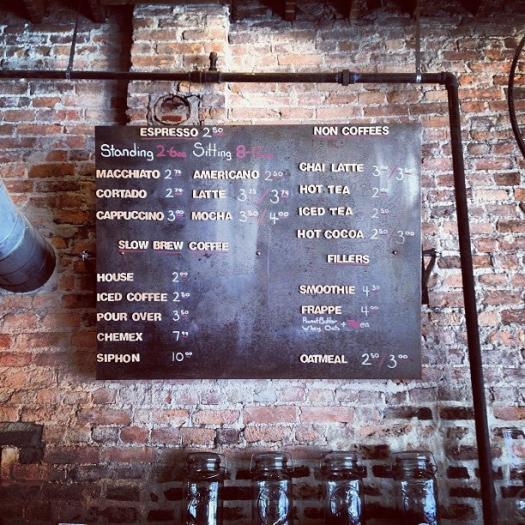 ESPRESSO 2.50
Standing 2-6oz Sitting 8-12oz
MACCHIATO 2.75
CORTADO 2.75
CAPPUCCINO 3.00
AMERICANO 2.50
LATTE 3.25/3.75
MOCHA 3.50/4.00
SLOW BREW COFFEE
HOUSE 2.00
ICED COFFEE 2.50
POUR OVER 3.50
CHEMEX 7.00
SIPHON 10.00
NON COFFEES
CHAI LATTE 3.00/3.50
HOT TEA 2.00
ICED TEA 2.50
HOT COCOA 2.50/3.00
FILLERS
SMOOTHIE 4.50
FRAPPE 4.00
Peanut Butter
Whey, Oats + ea
OATMEAL 2.50/3.00